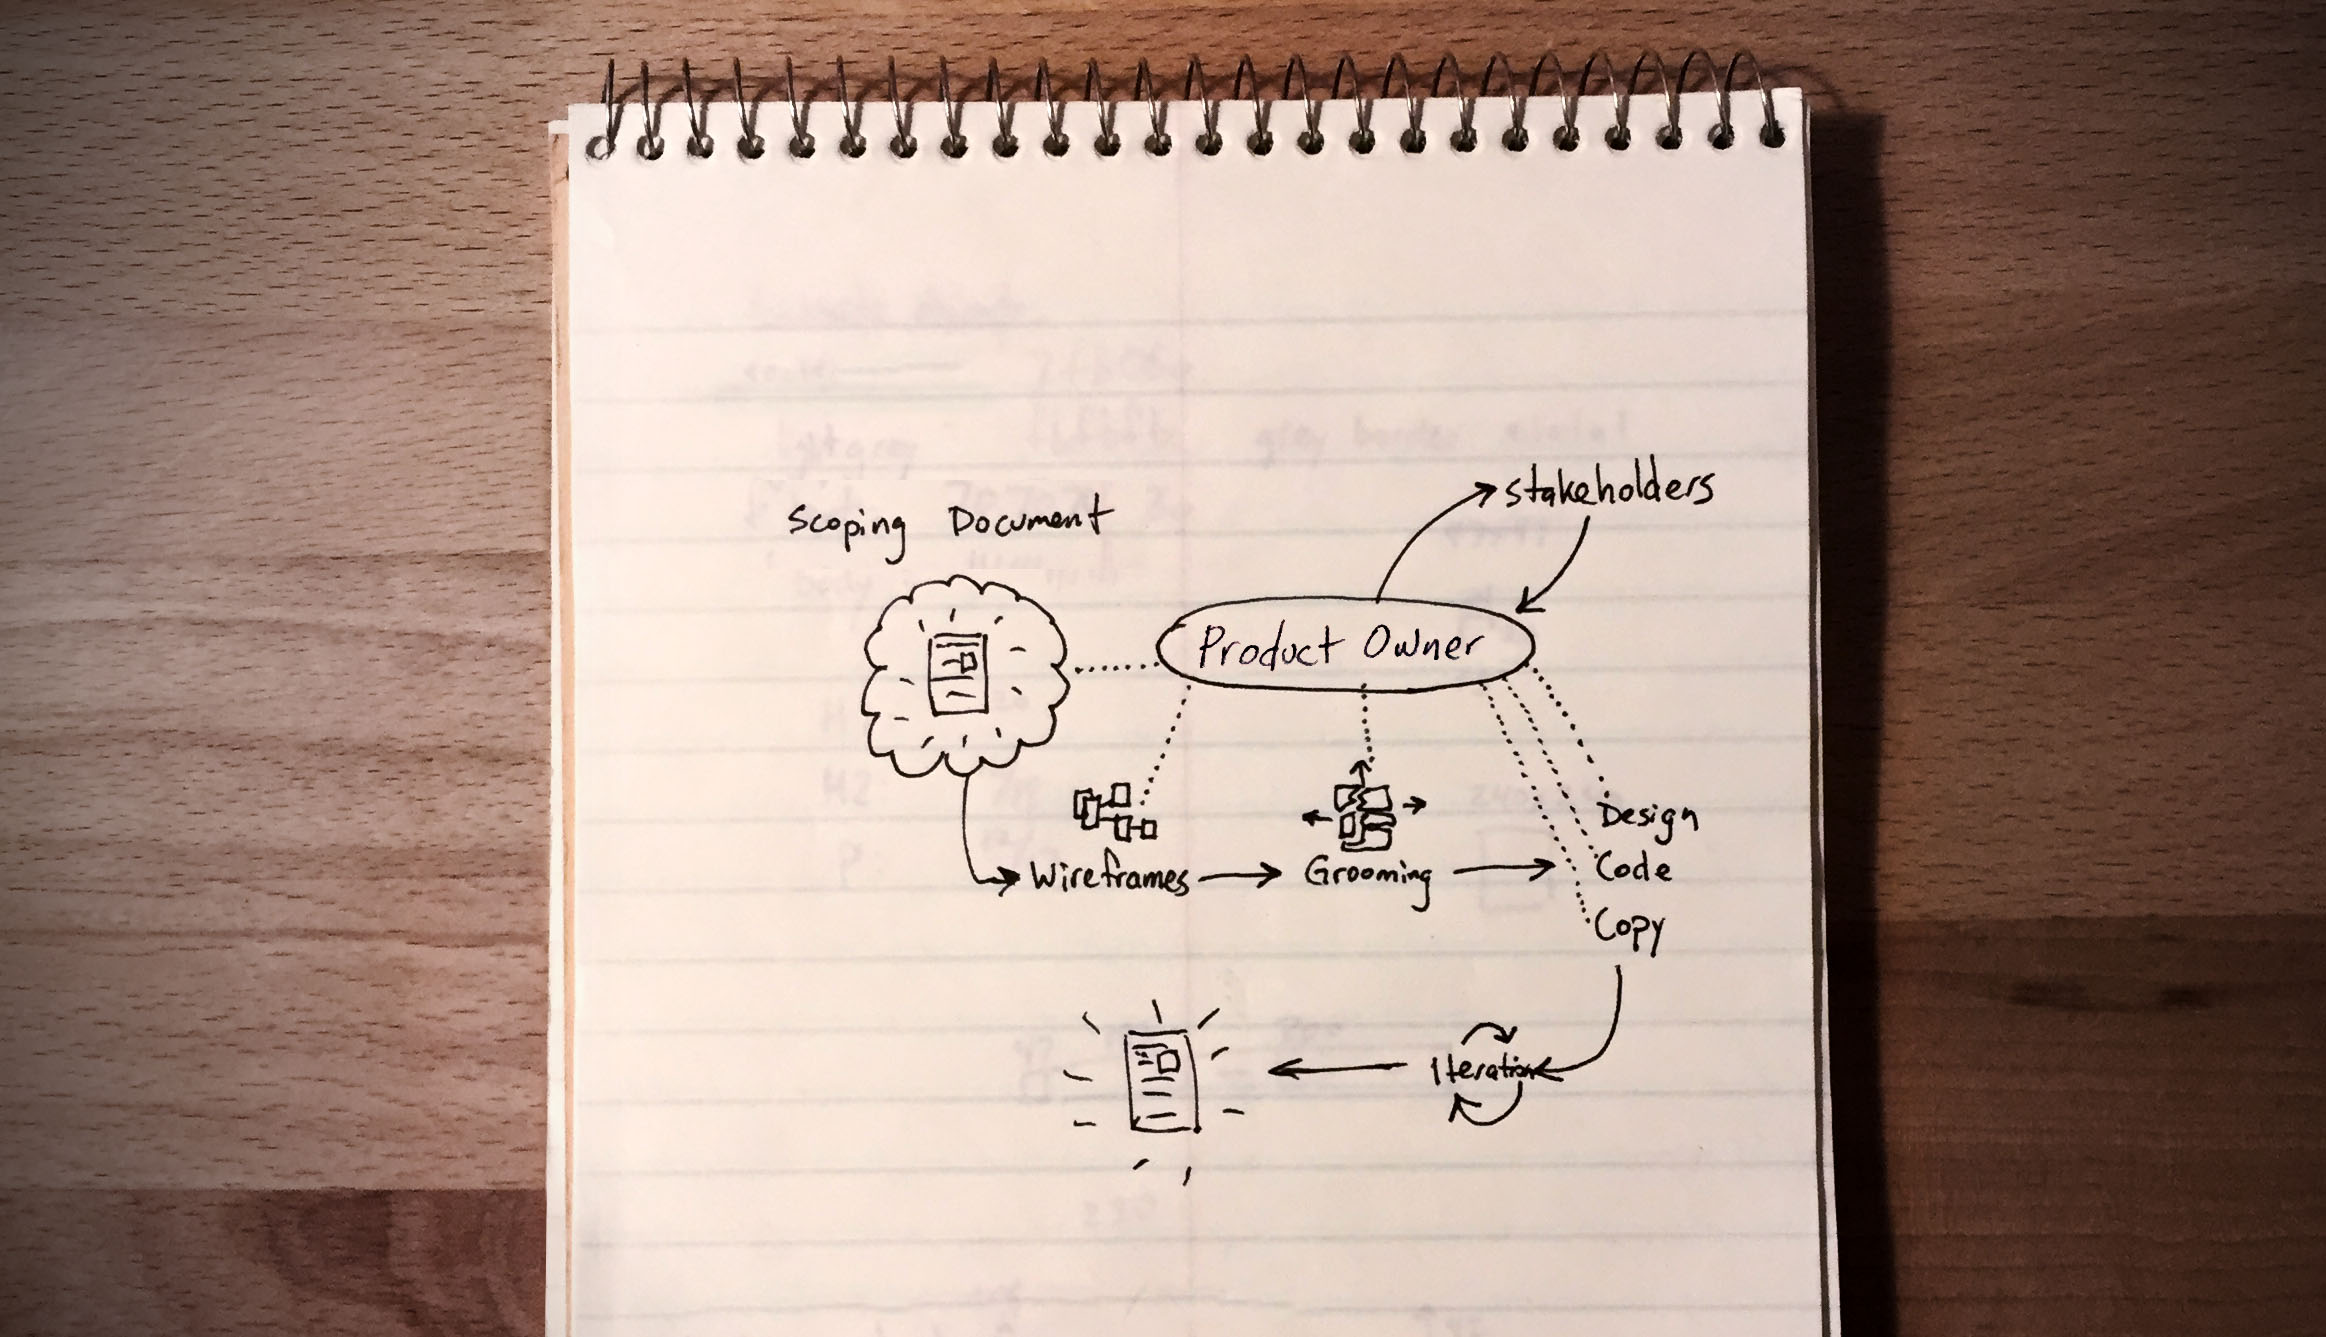 stakeholders
Scoping Document
Product Owner
Design
Code
Wireframes
Grooming
Copy
Iteration